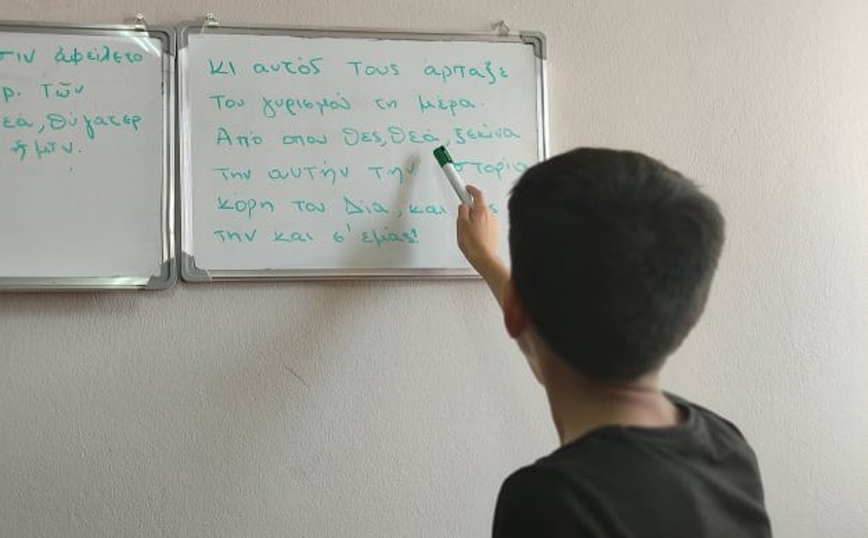 σιν ἀφείλετο
ρ. τῶν
εά, θύγατερ
ἡμῖν.
κι αυτός τους άρπαξε
του γυρισμού τη μέρα.
Από όπου θες, θεά, ξεκίνα
την αυτήν την στορία
κόρη του Δία, και ς
την και σ' εμάς!